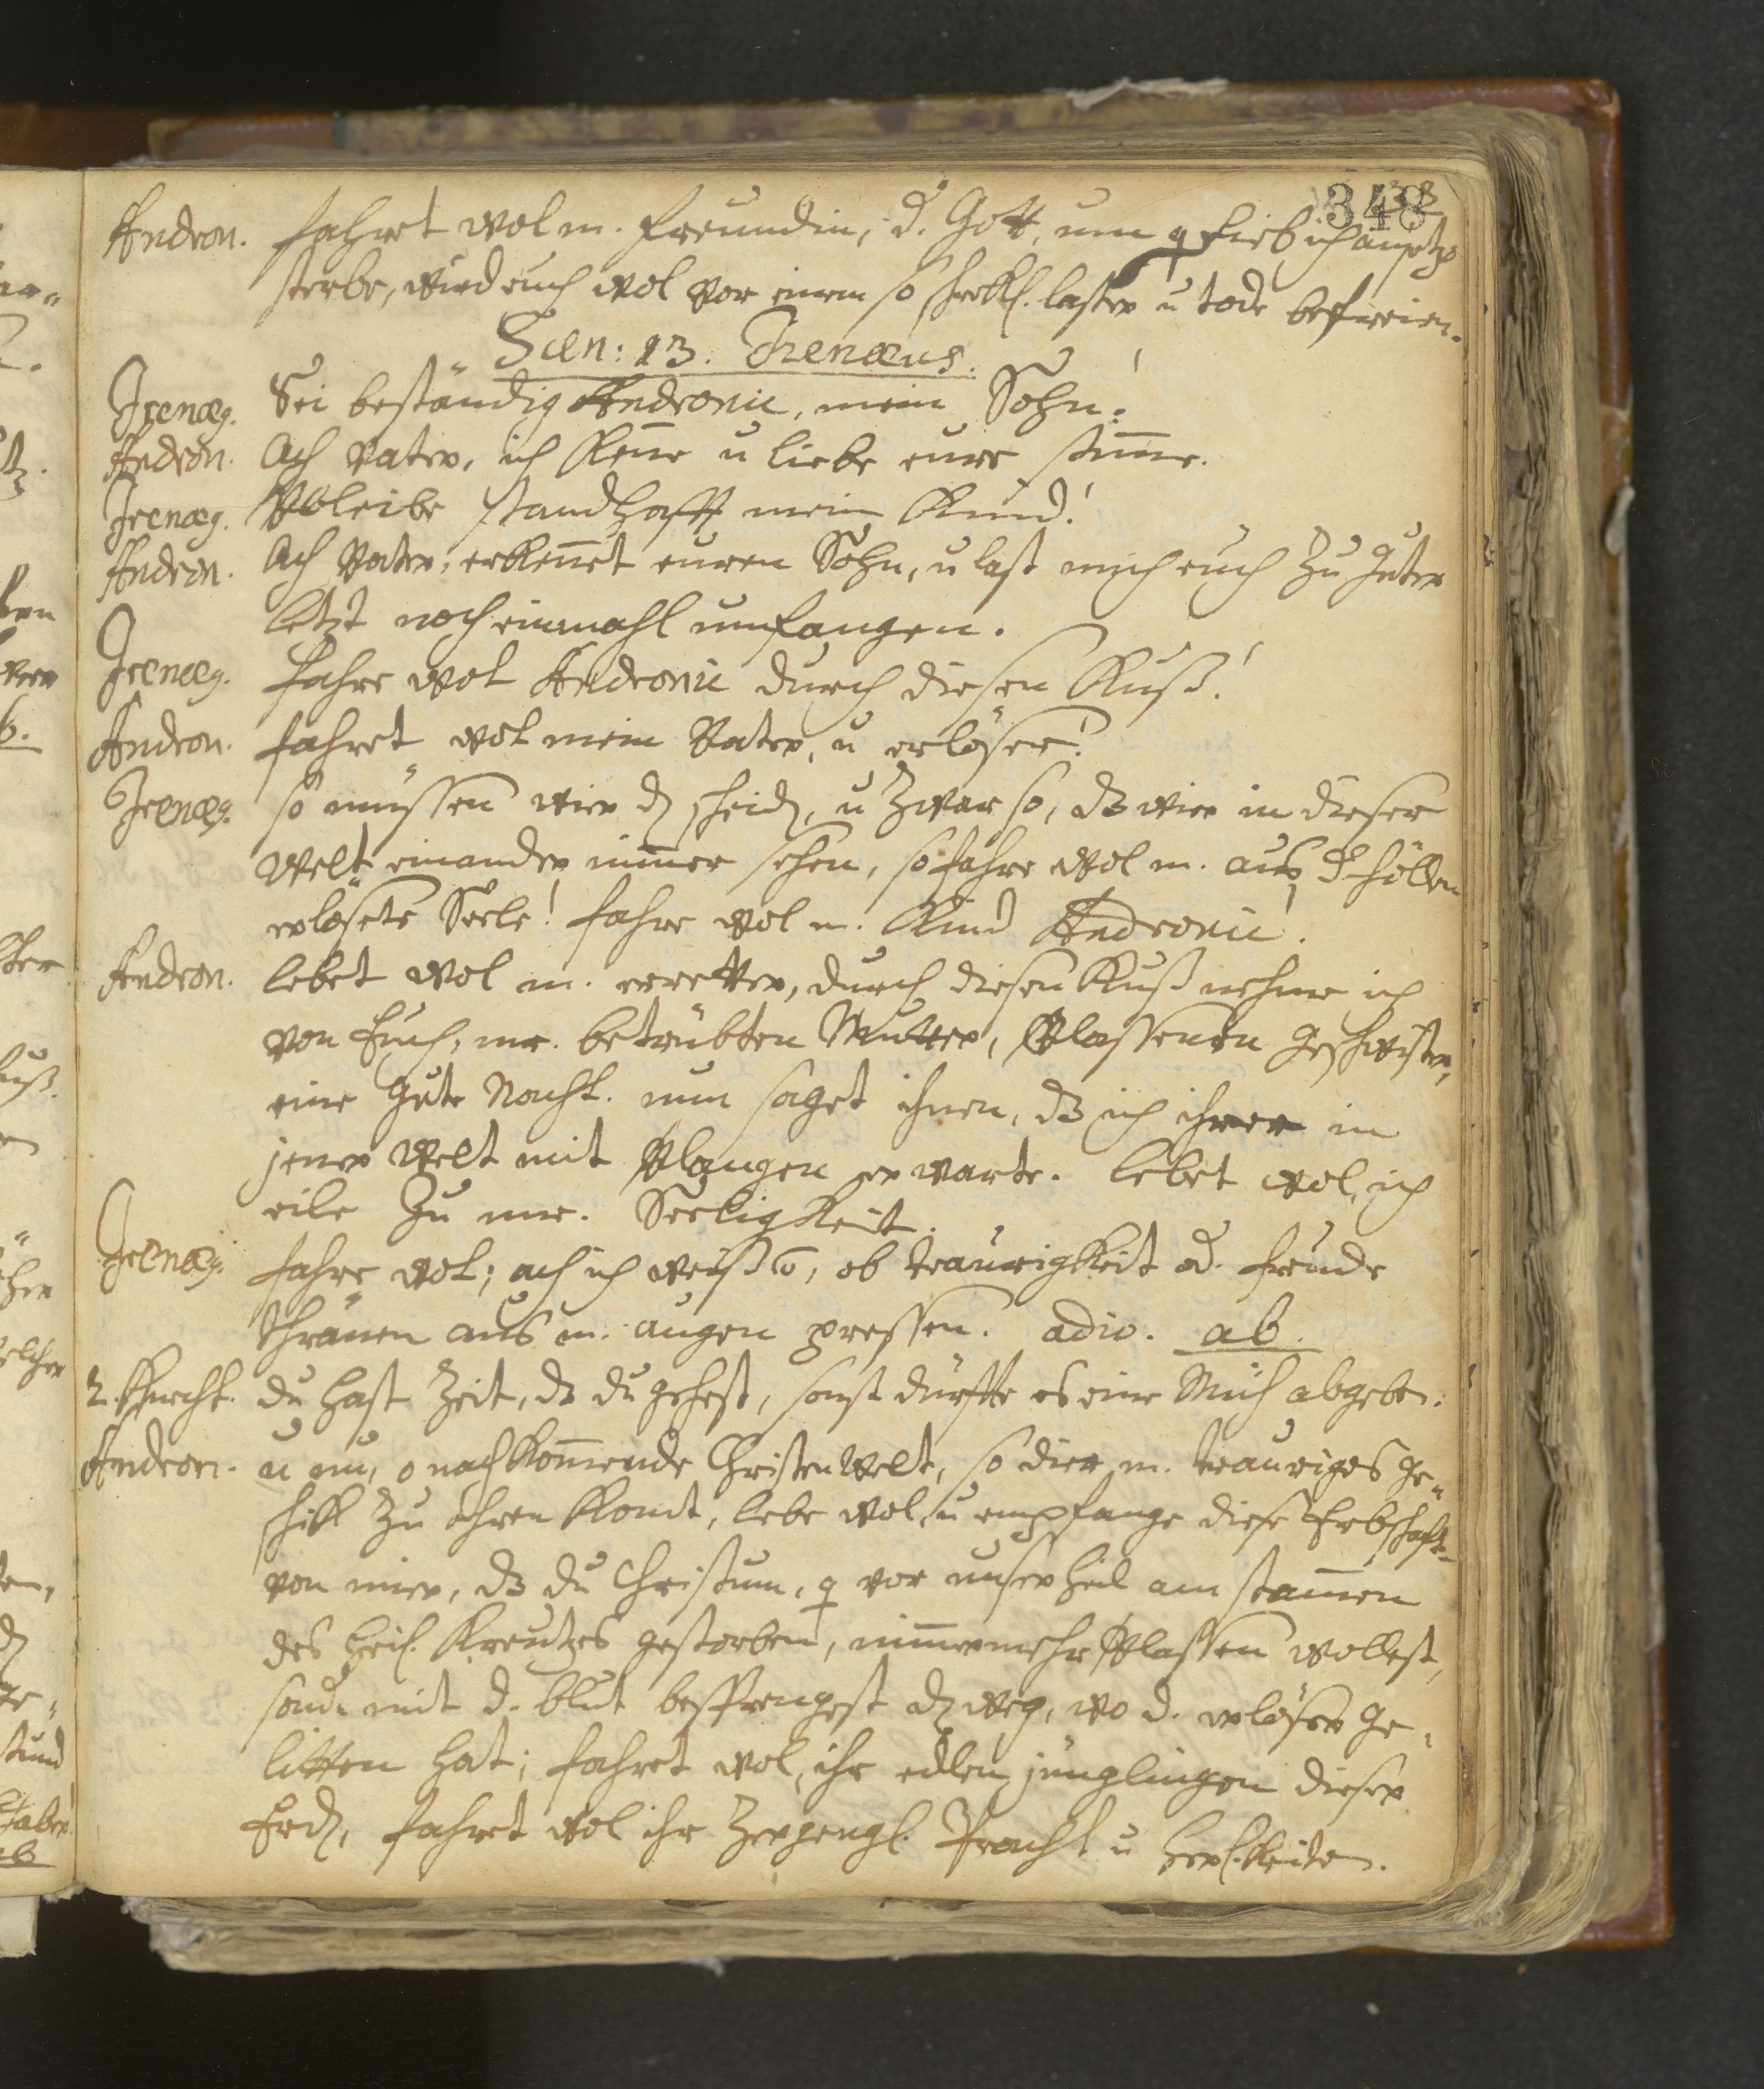 348
Andron. fahret wol m. freundin, d. Gott, um q lieb ich anjetzo
sterbe, wird euch wol vor einem so schrökl. laster u tode befreien.
Scen: 13. Irenæus.
Irenæg. Sei beständig Andronic, mein Sohn!
Andron. Ach vater, ich kenne u liebe eure stim̄e.
Irenæg. Vbleibe standhafft mein Kind!
Andron. Ach Vater, erkeñet euren Sohn, u last mich euch zu guter
letzt noch einmahl umfangen.
Irenæg. Fahre wol Andronic durch diesen Kuß!
Andron. fahret wol mein Vater, u erlöser!
Irenæg. so müssen wier dz scheidz, u zwar so, dz wier in dieser
Welt einander nim̄er sehen, so fahre wol m. aus d. höllen
erlösete Seele! fahre wol m. Kind Andronic!
Andron. lebet wol m. erretter, durch diesen Kuß nehme ich
von Euch, mr. betrübten Mutter, Vlassenen geschwister,
eine gute Nacht. nun saget ihnen, dz ich ihrer in
jener Welt mit Vlangen erwarte. lebet wol, ich
eile zu mr. Seeligkeit.
Irenæg. fahre wol; ach ich weiß, ob traurigkeit od. freude
thränen aus m. augen pressen. adio. ab.
2. Knecht. du hast Zeit, dz du gehest, sonst dürffte es eine Müh abgeben.
Andron. u nu, o nachkom̄ende Christen Welt, so dier m. trauriges ge-
schikk zu ohren komt, lebe wol, u empfange diese Erbschaft
von mier, dz du Christum, q vor unser heil am stam̄en
des heil. Kreutzes gestorben, nim̄ermehr Vlassen wollest,
sond. mit d. blut besprengest dz weg, wo d. erlöser ge-
litten hat; fahret wol, ihr edlen jünglingen dieser
Erdz, fahret wol ihr zergengl. Pracht u herl.keiten.